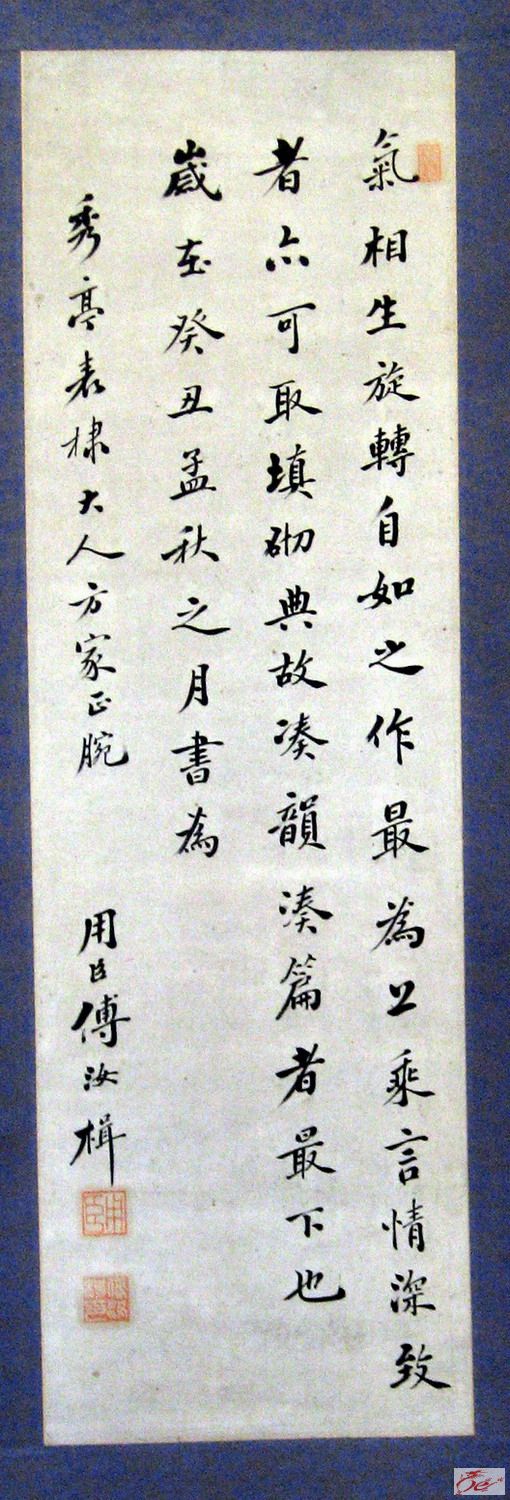 氣相生旋轉自如之作最為上乘言情深致
者亦可取填砌典故湊韻湊篇者最下也
歲在癸丑孟秋之月書為
秀亭表棣大人方家正腕
用臣傅汝楫